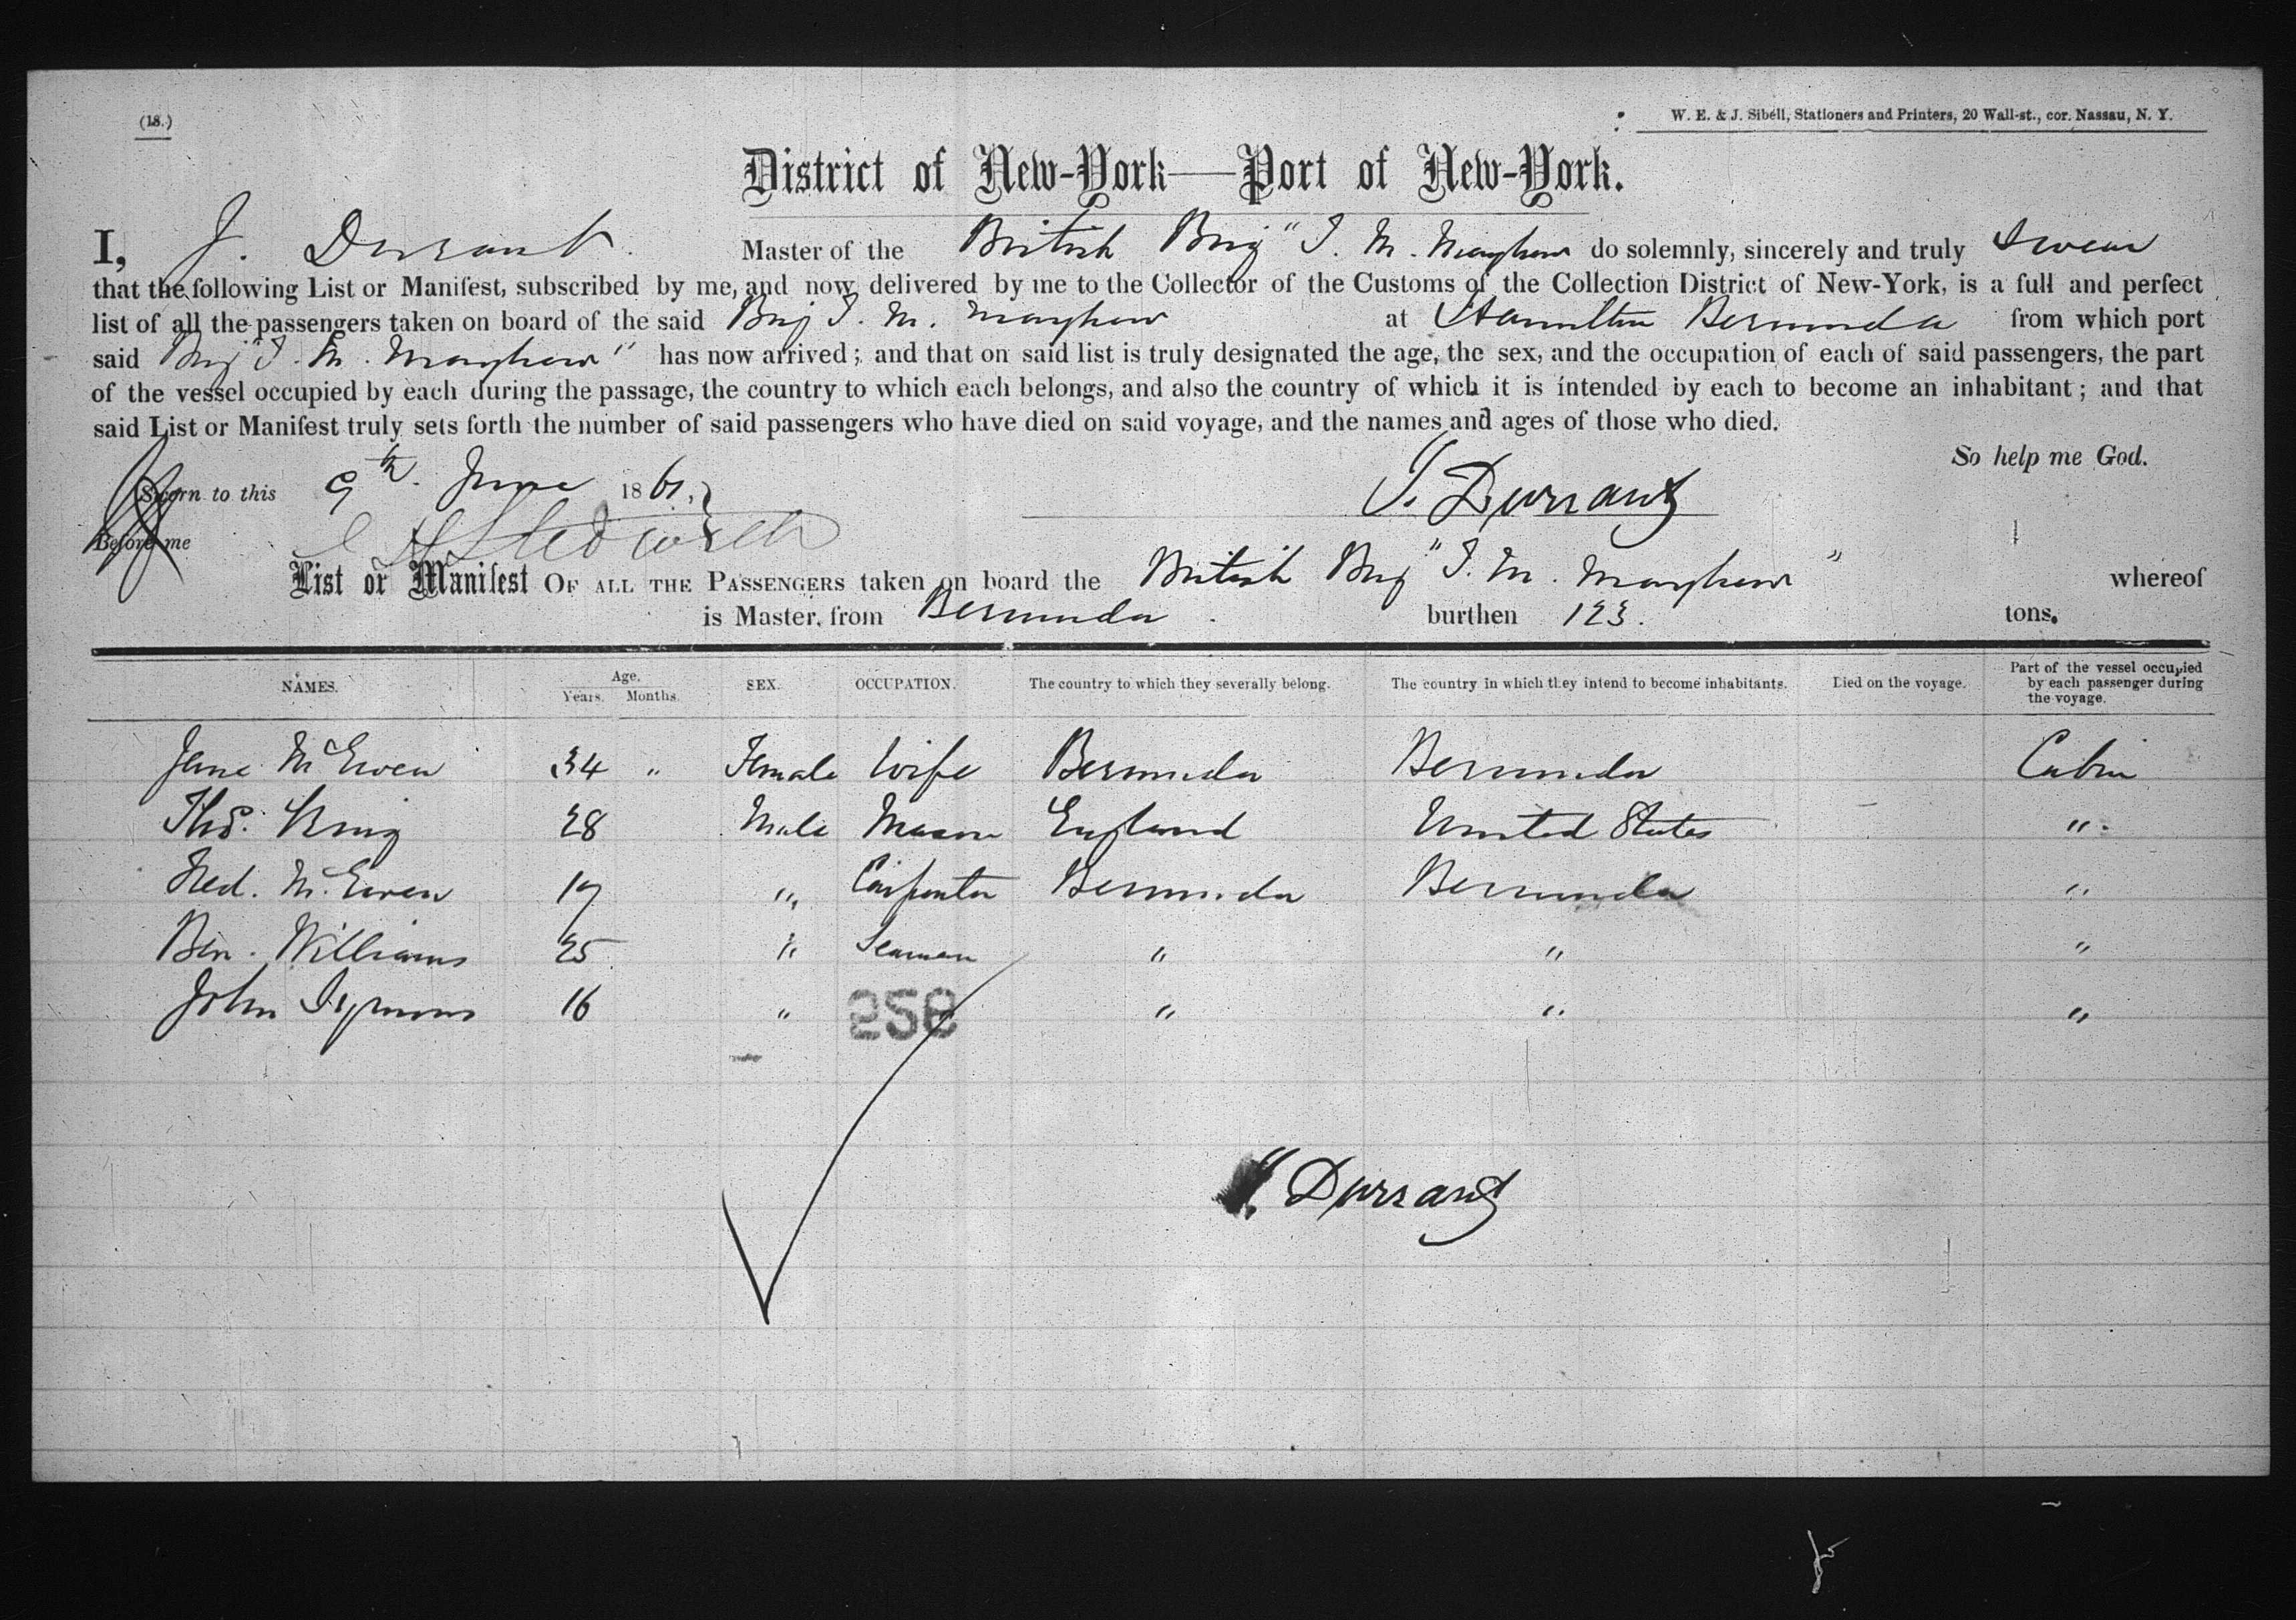 (18.)
W. E. & J. Sibell, Stationers and Printers, 20 Wall-st., cor. Nassau, N. Y.
District of New-York—Port of New-York.
I, J. Durrant Master of the British Brig "T. M. Mayhew do solemnly, sincerely and truly Swear
that the following List or Manifest, subscribed by me, and now delivered by me to the Collector of the Customs of the Collection District of New-York, is a full and perfect
list of all the passengers taken on board of the said Brig T. M. Mayhew at Hamilton Bermuda from which port
said Brig "T. M. Mayhew" has now arrived; and that on said list is truly designated the age, the sex, and the occupation of each of said passengers, the part
of the vessel occupied by each during the passage, the country to which each belongs, and also the country of which it is intended by each to become an inhabitant; and that
said List or Manifest truly sets forth the number of said passengers who have died on said voyage, and the names and ages of those who died.
So help me God.
Sworn to this 9th June 1861.
J. Durrant
Before me
List or Manifest OF ALL THE PASSENGERS taken on board the British Brig "T. M. Mayhew" whereof
is Master, from Bermuda burthen 123. tons.
NAMES. Age. Years. Months. SEX. OCCUPATION. The country to which they severally belong. The country in which they intend to become inhabitants. Died on the voyage. Part of the vessel occupied by each passenger during the voyage.
Jane McEwen 34 " Female Wife Bermuda Bermuda Cabin
Thos. King 28 Male Mason England United States "
Fred. McEwen 19 " Carpenter Bermuda Bermuda "
Ben. Williams 25 " Seaman " " "
John Symons 16 " " " "
258
J. Durrant